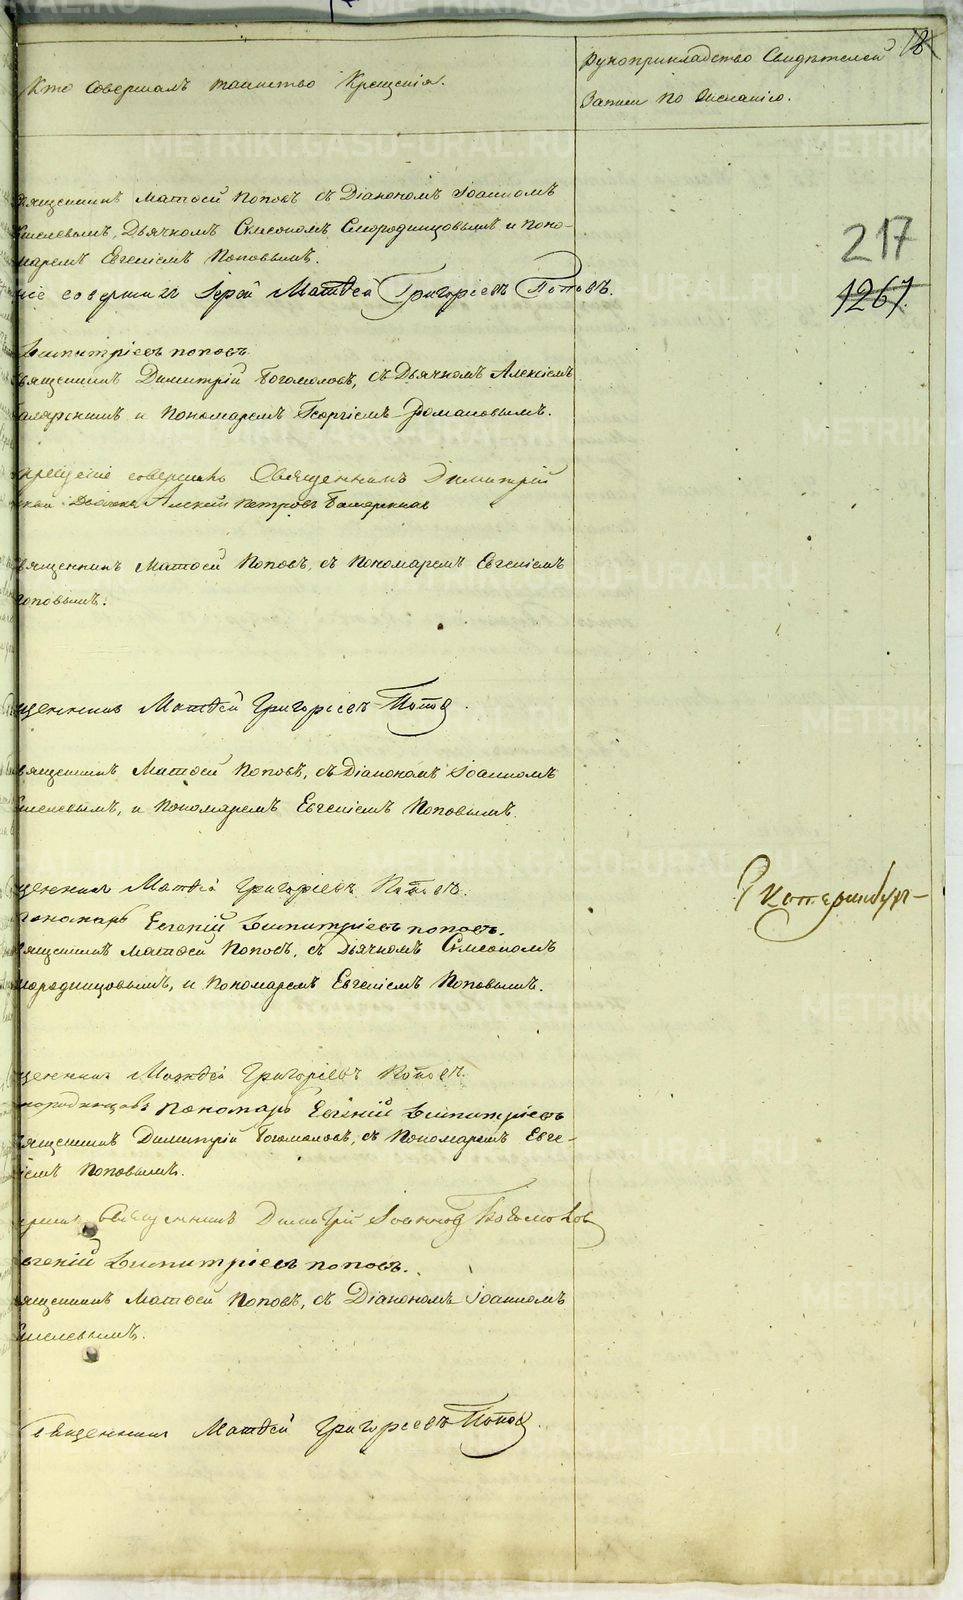 Кто совершалъ таинство Крещенія.
Рукоприкладство Свидѣтелей
Записи по желанію.
18
священникъ Матѳей Поповъ съ Діакономъ Іоанномъ
Дьячкомъ Симеономъ Смородинцовымъ и поно-
маремъ Евгеніемъ Поповымъ.
217
совершилъ Іерей Матвей Григорьевъ Поповъ.
1267
Димитріевъ поповъ
священникъ Димитрій Богомоловъ, съ Дьячкомъ Алексіемъ
и Пономаремъ Георгіемъ Романовымъ.
крещеніе совершилъ Священникъ Димитрій
Алексій Петровъ
священникъ Матѳей Поповъ, съ Пономаремъ Евгеніемъ
Поповымъ.
Священникъ Матвей Григорьевъ Попов.
священникъ Матѳей Поповъ, съ Діакономъ Іоанномъ
и Пономаремъ Евгеніемъ Поповымъ.
Священникъ Матвей Григорьевъ Поповъ.
Екатеринбург
пономарь Евгеній Димитріевъ поповъ.
священникъ Матѳей Поповъ, съ Дьячкомъ Симеономъ
Смородинцовымъ, и Пономаремъ Евгеніемъ Поповымъ.
Священникъ Матвей Григорьевъ Поповъ.
Смородинцовъ Пономарь Евгеній Димитріевъ
священникъ Димитрій Богомоловъ, съ Пономаремъ Евге-
ніемъ Поповымъ.
Священникъ Димитрій Іоаннов Богомолов
Евгеній Димитріевъ поповъ.
священникъ Матѳей Поповъ, съ Діакономъ Іоанномъ
Священникъ Матвей Григорьевъ Попов.
METRIKI.GASO-URAL.RU